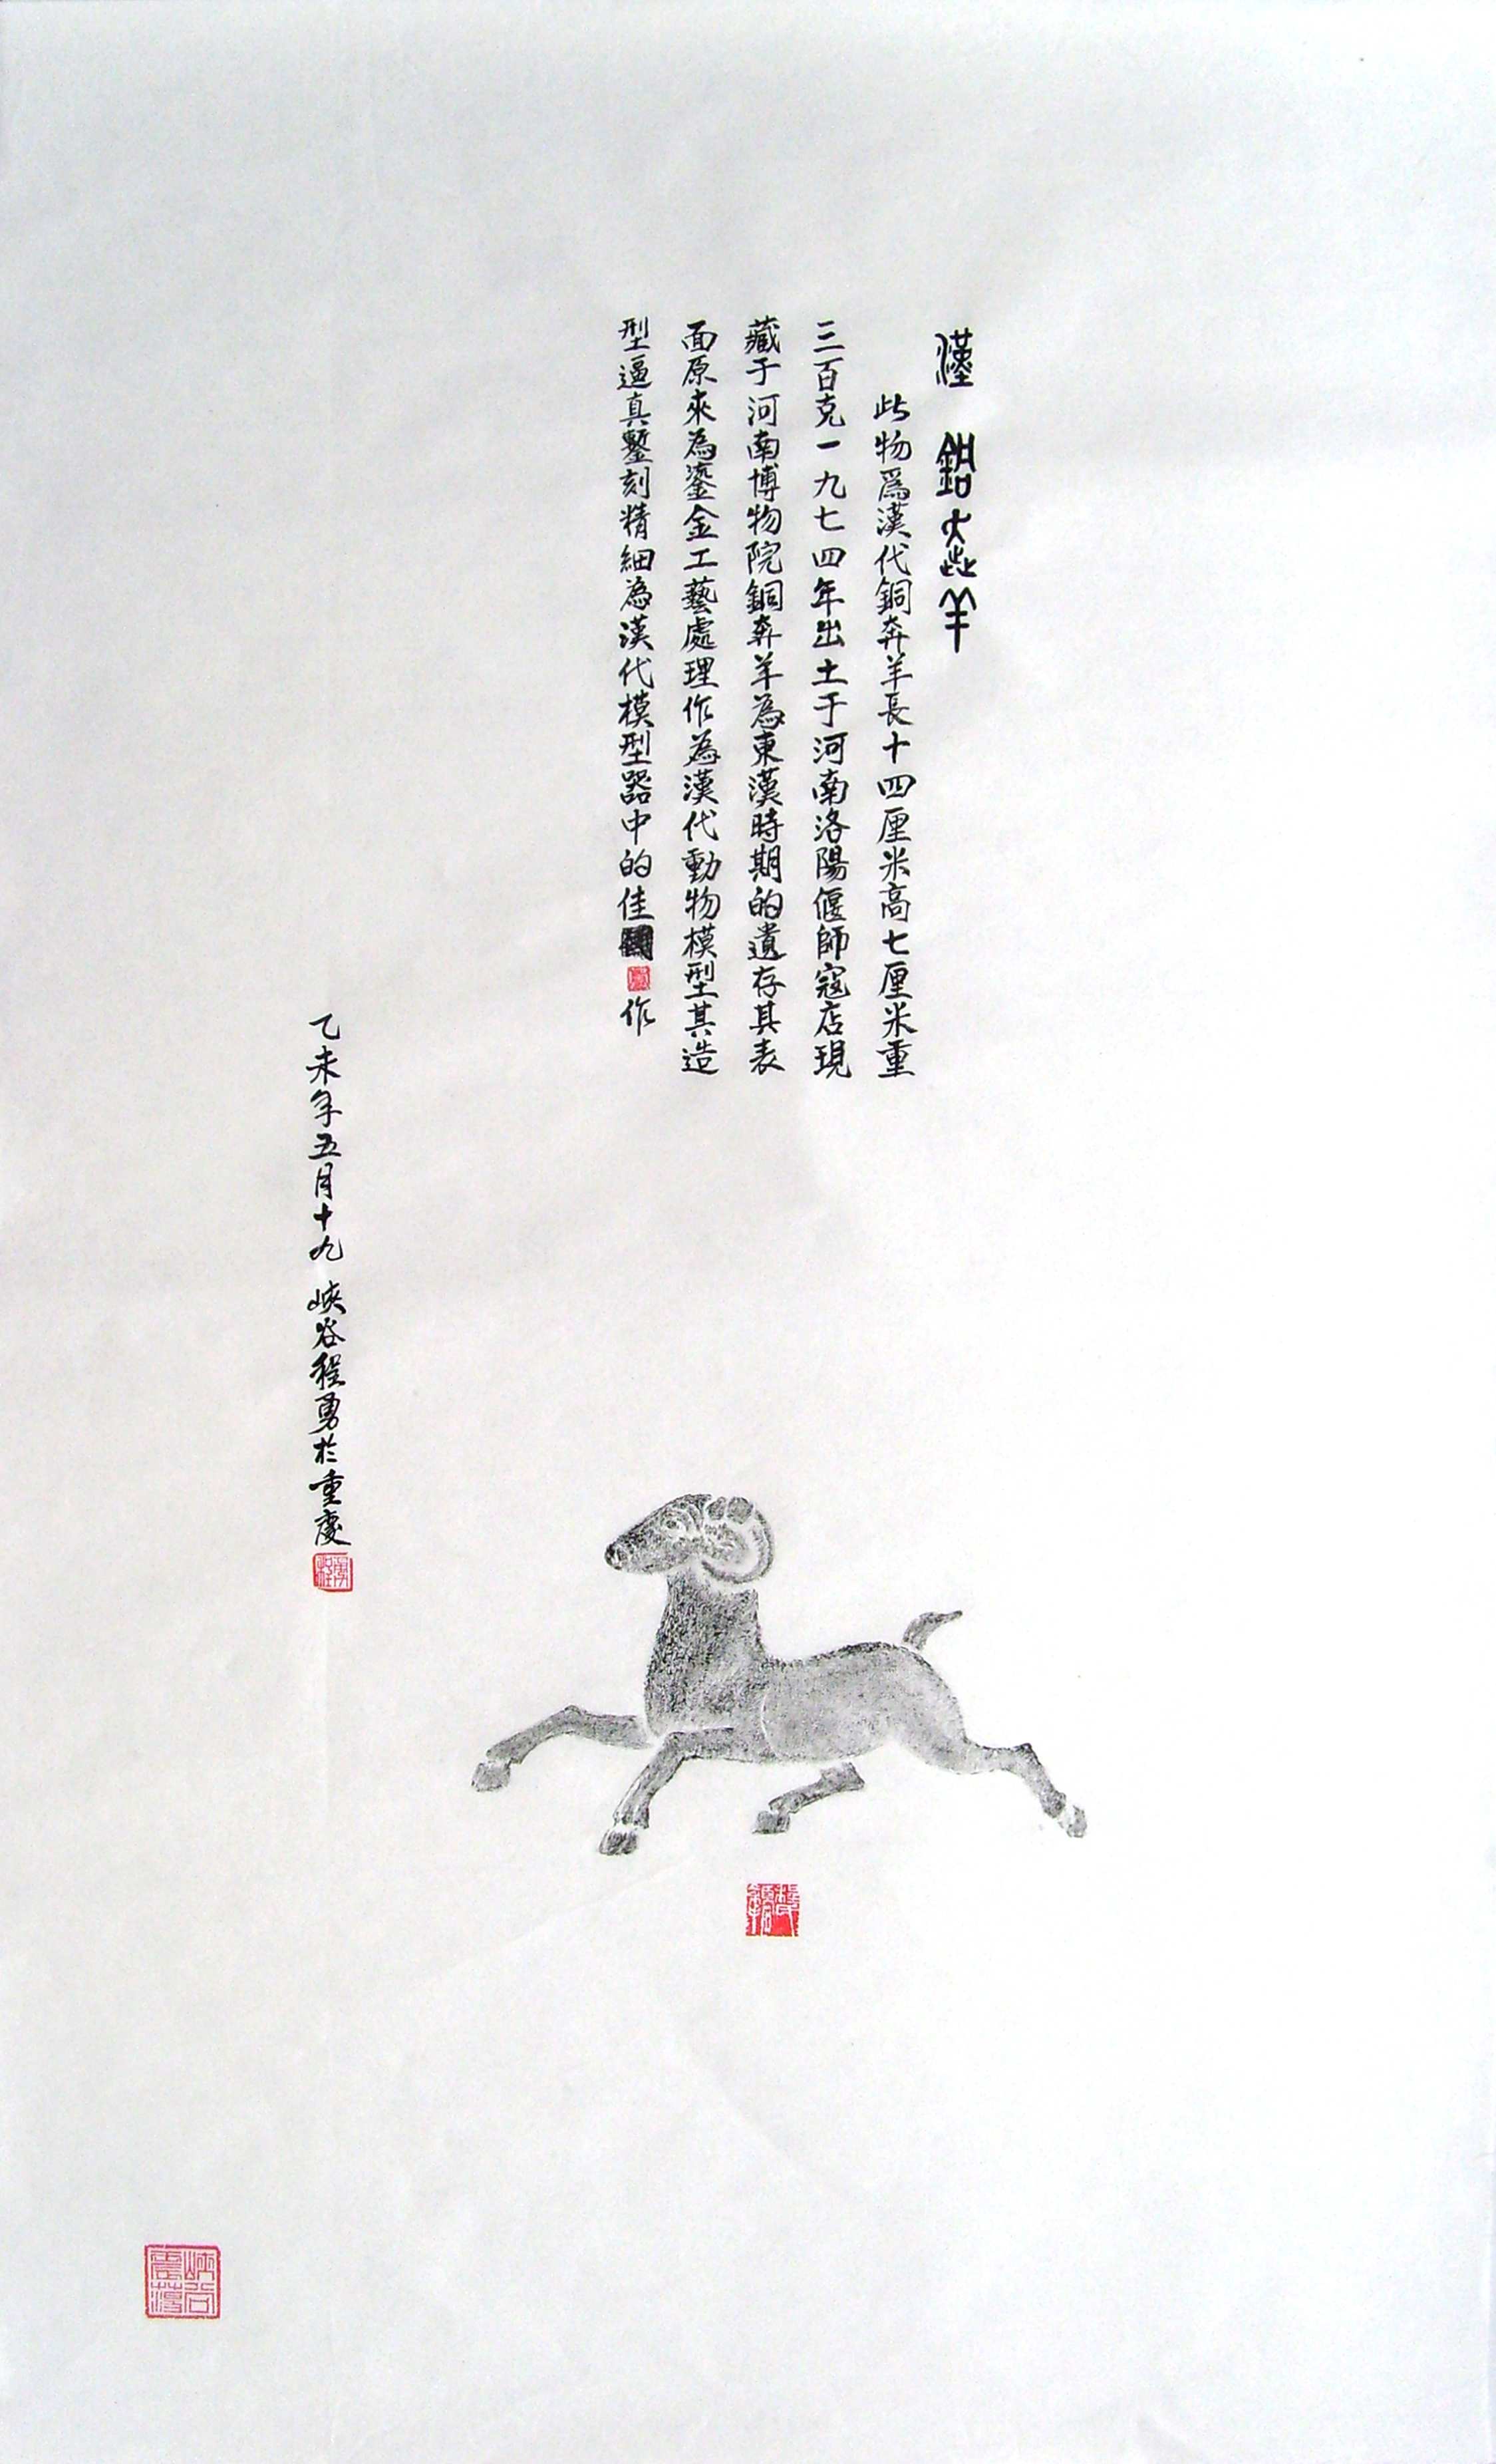 漢 銅奔羊
此物爲漢代銅奔羊長十四厘米高七厘米重
三百克一九七四年出土于河南洛陽偃師寇店現
藏于河南博物院銅奔羊為東漢時期的遺存其表
面原來為鎏金工藝處理作為漢代動物模型其造
型逼真鏨刻精細為漢代模型器中的佳作
乙未年五月十九 峽谷程勇於重慶